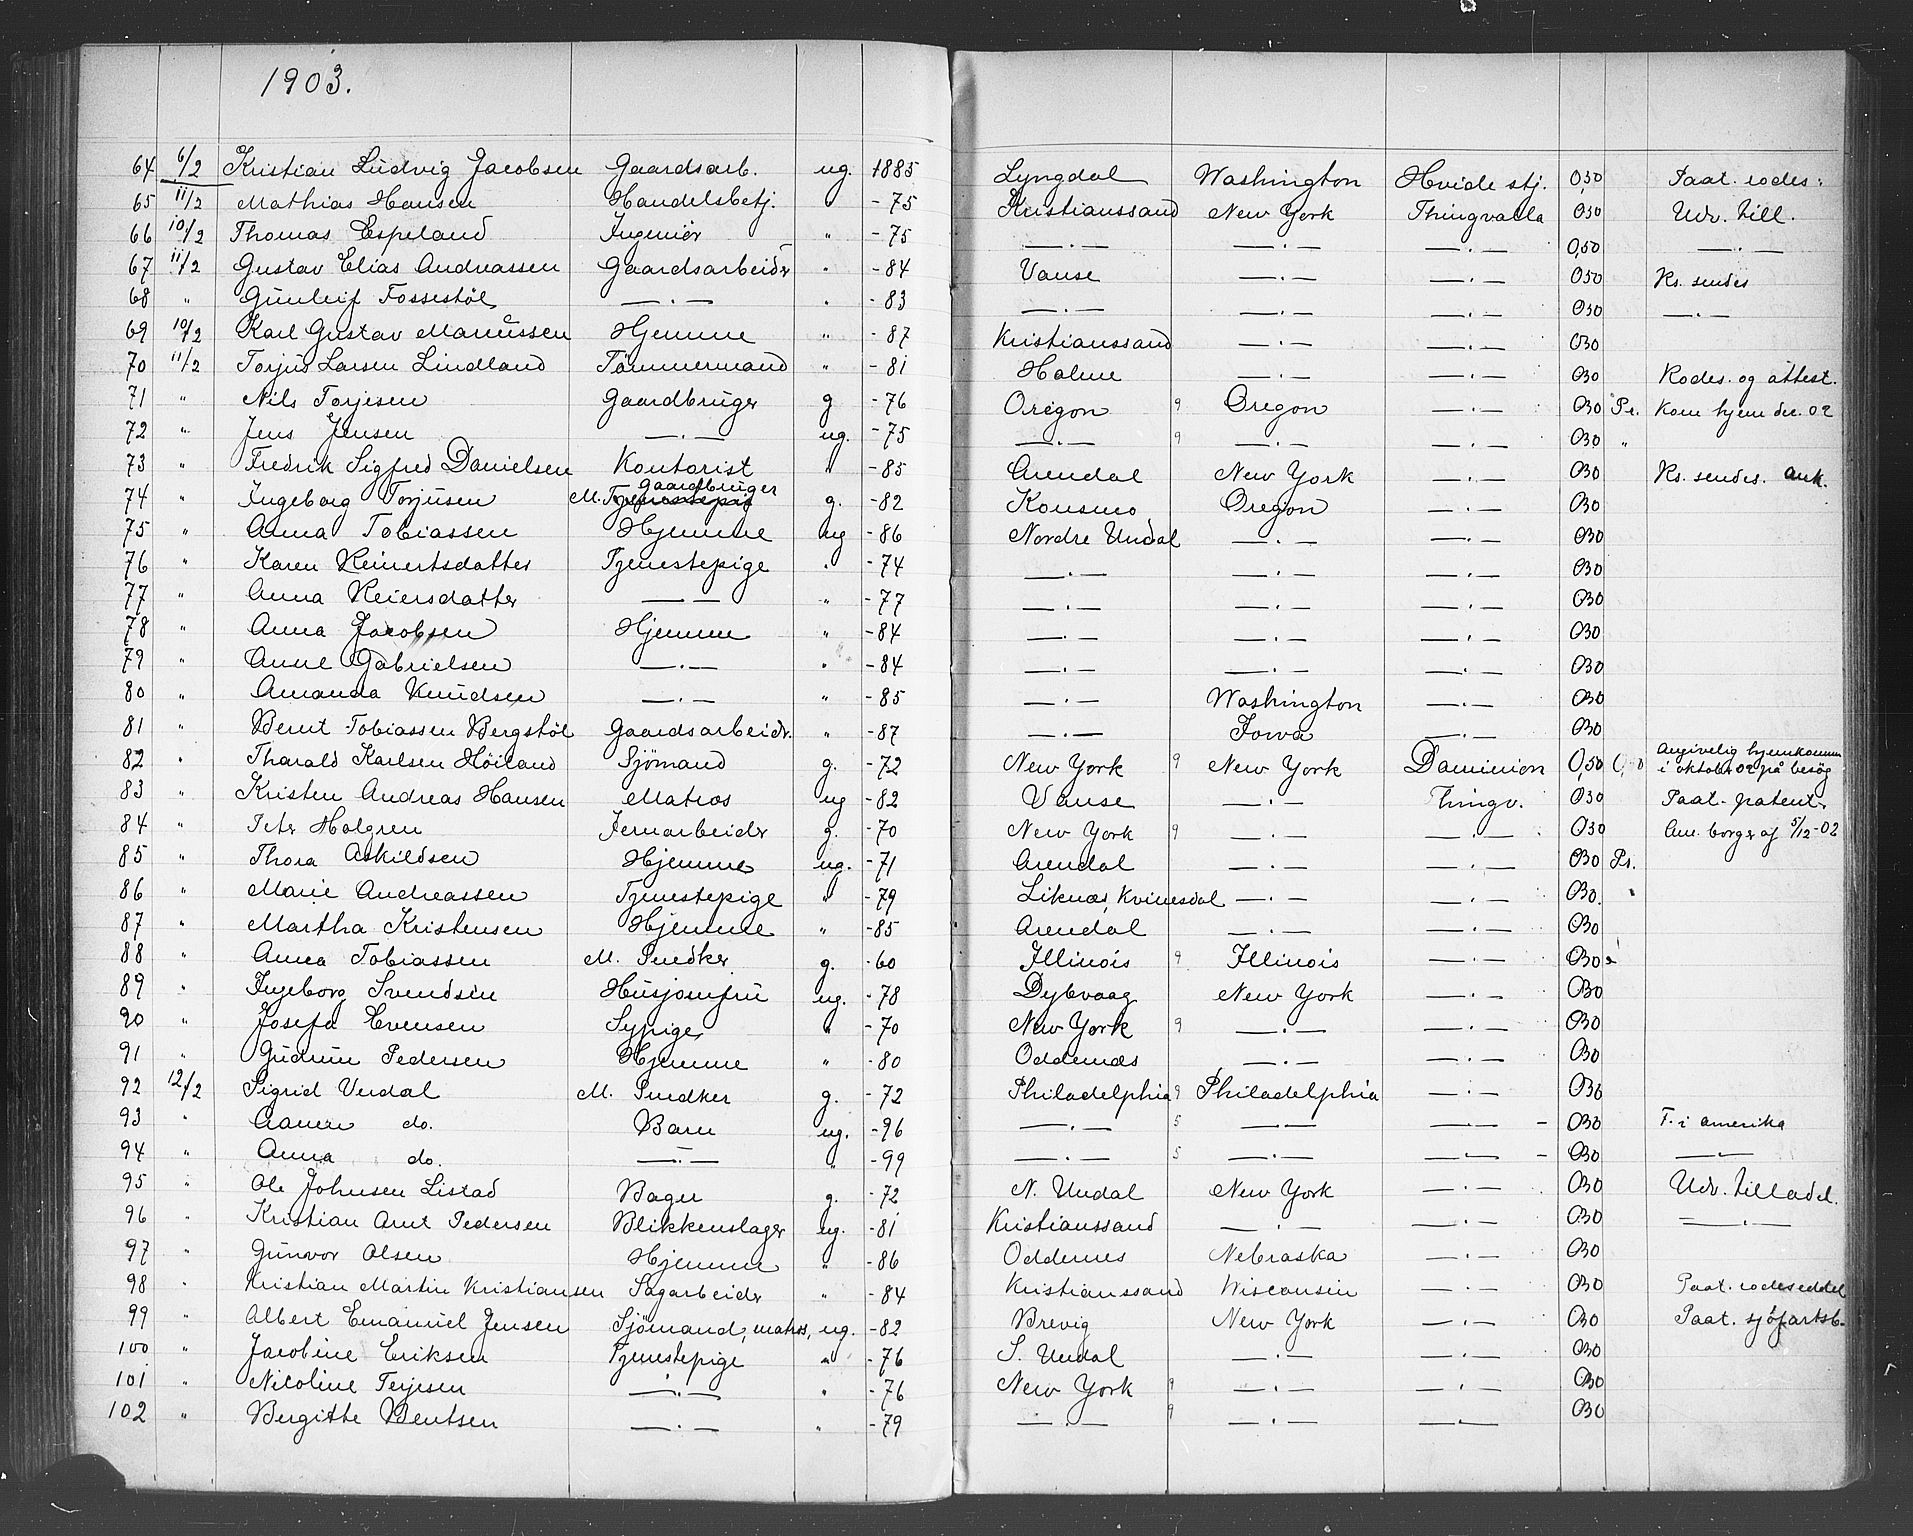 1903.
64 6/2 Kristian Ludvig Jacobsen Gaardsarb. ug. 1885 Lyngdal Washington Hvide stj. 0,50 Paat. rodes.
65 11/2 Mathias Hansen Handelsbetj. " -75 Kristianssand New York Thingvalla 050 Udv. till.
66 10/2 Thomas Espeland Ingeniør " -75 —〃— —〃— —〃— 0,50 —〃—
67 11/2 Gustav Elias Andreassen Gaardsarbeidr " -84 Vanse —〃— —〃— 050 Rs. sendes
68 " Gunleif Fossestøl —〃— " -83 —〃— —〃— —〃— 050 —〃—
69 10/2 Karl Gustav Mariussen Hjemme " -87 Kristianssand —〃— —〃— 050
70 11/2 Torjus Larsen Lindland Tømmermand " -81 Halme —〃— —〃— 050 Rodes. og attest.
71 " Nils Torjesen Gaardbruger g -76 Oregon 9 Oregon —〃— 050 Pr. Kom hjem dec. 02
72 " Jens Jensen —〃— ug. -75 —〃— 9 —〃— —〃— 050 "
73 " Fredrik Sigfred Danielsen Kontorist " -85 Arendal New York —〃— 050 Rs. sendes. Ank.
74 " Ingeborg Torjusen M. Gaardbruger g. -82 Konsmo Oregon —〃— 050
75 " Anna Tobiassen Hjemme ug -86 Nordre Undal —〃— —〃— 050
76 " Karen Reinertsdatter Tjenestepige " -74 —〃— —〃— —〃— 050
77 " Anna Reiersdatter —〃— " -77 —〃— —〃— —〃— 050
78 " Anna Jacobsen Hjemme " -84 —〃— —〃— —〃— 050
79 " Anne Gabrielsen —〃— " -84 —〃— —〃— —〃— 050
80 " Amanda Knudsen —〃— " -85 —〃— Washington —〃— 050
81 " Bernt Tobiassen Bergstøl Gaardsarbeidr. " -87 —〃— Iowa —〃— 050
82 " Tharald Karlsen Höiland Sjømand g. -72 New York 9 New York Dominion 0,50 Angivelig hjemkommen i oktober 02 på besøg
83 " Kristen Andreas Hansen Matros ug -82 Vanse —〃— Thingv. 050 Paat. patent.
84 " Petr Holgren Jernarbeidr g. -70 New York 9 —〃— —〃— 050 Am. borger af 5/12-02
85 " Thora Askildsen Hjemme ug. -71 Arendal —〃— —〃— 050 Pr.
86 " Marie Andreassen Tjenestepige " -79 Liknæs, Kvinesdal —〃— —〃— 050. "
87 " Martha Kristensen Hjemme " -85 Arendal —〃— —〃— 050
88 " Anna Tobiassen M. Snedker g. -60 Illinois 9 Illinois —〃— 050
89 " Ingeborg Svendsen Husjomfru ug. -78 Dybvaag New York —〃— 050
90 " Josefa Evensen Sypige " -70 New York 9 —〃— —〃— 050
91 " Gudrun Pedersen Hjemme " -80 Oddernæs —〃— —〃— 050
92 12/2 Sigrid Undal M. Snedker g. -72 Philadelphia 9 Philadelphia —〃— 050
93 " do. Barn ug. -96 —〃— 5 —〃— —〃— 050 F. i amerika
94 " Anna do. —〃— " -99 —〃— 5 —〃— —〃— 050 —〃—
95 " Ole Johnsen Listad Bager g. -72 N. Undal New York —〃— 050 Udv. tilladel.
96 " Kristian Arnt Pedersen Blikkenslager ug. -81 Kristianssand —〃— —〃— 050 —〃—
97 " Gunvor Olsen Hjemme " -86 Oddernes Nebraska —〃— 050
98 " Kristian Martin Kristiansen Sagarbeidr " -84 Kristianssand Wisconsin —〃— 050 Paat. rodeseddel
99 " Albert Emanuel Jensen Sjømand, matros, ug. -82 Brevig New York —〃— 050 Paat. sjøfartsb.
100 " Jacobine Eriksen Tjenestepige " -76 S. Undal —〃— —〃— 050
101 " Nicoline Terjesen —〃— " -76 New York 9 —〃— —〃— 050
102 " Bergitte Bentsen —〃— " -79 —〃— 9 —〃— —〃— 050